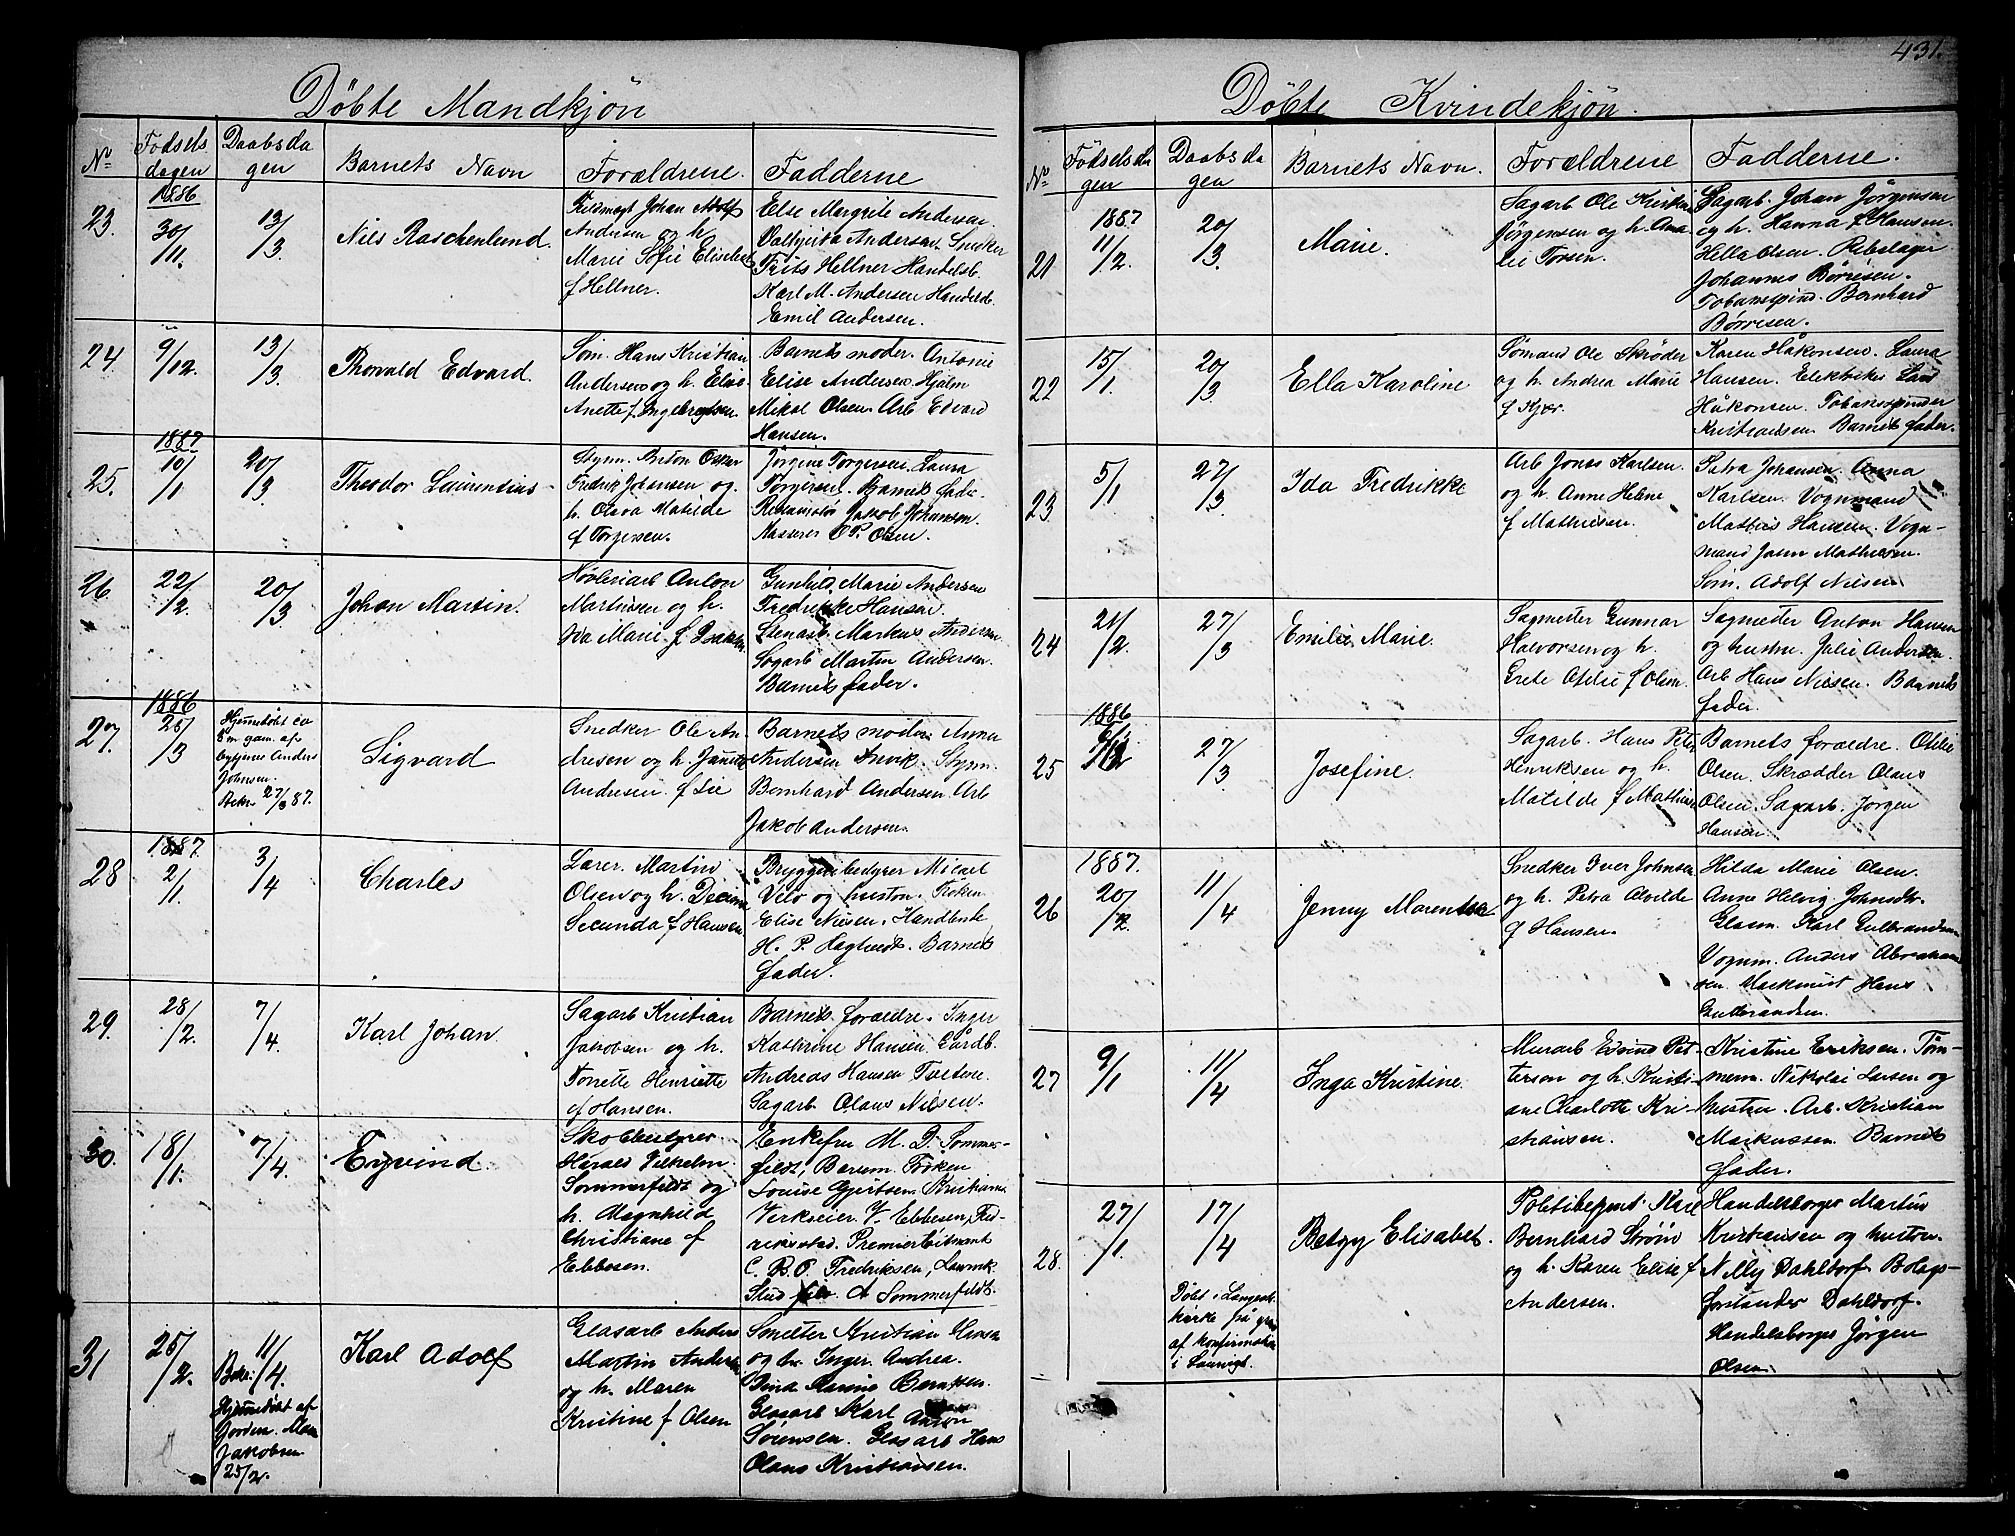 431.
Döbte Mandkjön
No
Födsels
dagen
Daabsda
gen
Barnets Navn
Forældrene.
Fadderne
23.
1886
30/11.
13/3
Nils Raschenlund.
Johan Adolf
Andersen og h.
Marie Sofie Elisabet
f Hellner.
Else Margrite Andersen
Andersen. Snedker
Frits Hellner Handelsb.
Karl M. Andersen Handelsb.
Emil Andersen.
24.
9/12.
13/3
Thorvald Edvard.
Söm. Hans Kristian
Andersen og h. Elise
Anette f. Ingebregtsen.
Barnets moder. Antonie
Elise Andersen. Hjalm
Mikal Olsen. Arb Edvard
Hansen.
25.
1887
10/1
20/3
Theodor Laurentius
Styrm. Anton Oskar
Fredrik Johansen og
h. Olava Matilde
f Torgersen.
Jörgine Torgersen. Laura
Torgersen. Barnets fader.
Jakob Johansen.
O. P. Olsen.
26.
22/2.
20/3
Johan Martin.
Høvleriarb Anton
Martinsen og h.
Ida Marie f. Isaksen
Gunhild Marie Andersen
Fredrikke Hansen.
Stenarb. Markus Andersen
Sagarb Martin Andersen.
Barnets fader.
27.
1886
25/3
Hjemmedöbt ca
8 m. gam. af
Anders
Johnsen.
Bekr. 27/3 87.
Sigvard
Snedker Ole An
dresen og h. Janette
Andresen f Lie
Barnets moder Anna
Andersen Anvik. Styrm.
Bernhard Andersen. Arb
Jakob Andersen.
28
1887.
2/1
3/4
Charles
Lærer. Martin
Olsen og h. Decima
Secunda f Hansen
Bryggeribestyrer Mikael
Velo og hustru. Fröken
Elise Nielsen. Handlende
H. P. Hagtvedt. Barnets
fader.
29.
28/2.
7/4.
Karl Johan.
Sagarb Kristian
Jakobsen og h.
Tonette Henriette
f Hansen.
Barnets forældre. Inger
Kathrine Hansen. Gårdb.
Andreas Hansen
Sagarb Olaus Nilsen.
30.
18/1.
7/4.
Eyvind.
Skolbestyrer
Harald Vilhelm
Sommerfeldt og
h. Magnhild
Christiane f
Ebbesen.
Enkefru M. D. Sommer-
feldt, Bærum. Fröken
Louise Gjertsen Kristiania
Verkseier V. Ebbesen, Fred-
rikstad. Premierlöitnant
C. B. O. Fredriksen, Laurvik
Stud filo. A Sommerfeldt.
31
25/2.
Bekr. 11/4.
Hjemmedöbt af
Jordm. Maren
Jakobsen
25/2.
Karl Adolf
Glasarb Anders
Martin Andersen
og h. Maren
Kristine f Olsen
Smelter Kristian
og h. Inger. Andrea.
Berntsen.
Glasarb Karl Anton
Sörensen. Glasarb Hans
Olaus Kristiansen.
Döbte Kvindekjön.
No
Födselsda
gen
Daabsda
gen
Barnets Navn.
Forældrene
Fadderne.
21
1887
11/2.
20/3.
Marie.
Sagarb Ole Kristian
Jörgensen og h. Ama
lie Torsen.
Sagarb. Johan Jörgensen
og h. Hanna f. Hansen.
Hella Olsen. Rebslager
Johannes Börresen.
Tobakspind. Bernhard
Börresen.
22
15/1.
20/3
Ella Karoline
Sömand Ole Schröder
og h. Andrea Marie
f Kjær.
Karen Håkonsen. Laura
Hansen. Elektriker Lars
Håkonsen. Tobakspinder
Kristiansen Barnets fader.
23.
5/1
27/3
Ida Fredrikke
Arb Jonas Karlsen.
og h. Anne Helene
f Mathisen.
Petra Johansen. Anna
Karlsen. Vognmand
Mathias Hansen. Vogn-
mand Johan Mathisen.
Söm. Adolf Nilsen
24
21/2.
27/3
Emilie Marie.
Sagmester Gunnar
Halvorsen og h.
Grete Otilie f Olsen.
Sagmester Anton Hansen
og hustru. Julie Andersen.
Arb Hans Nilsen. Barnets
fader.
25
1886
27/3
Josefine.
Sagarb. Hans Peter
Henriksen og h.
Matilde f Mathisen
Barnets forældre. Otilie
Olsen. Skrædder Olaus
Olsen. Sagarb. Jörgen
Hansen.
26
1887.
20/2.
11/4
Jenny Marentse
Snedker Iver Johnsen
og h. Petra Alvilde
f Hansen.
Hilda Marie Olsen.
Anne Helvig Johnsdtr.
Glasm. Karl Gulbrandsen
Vognm. Anders Abraham
sen. Maskinist Hans
Gulbrandsen.
27
9/1
11/4
Inga Kristine.
Murarb Edvind Pet-
terson og h. Kristi-
ane Charlotte Kri-
stiansen.
Kristine Eriksen. Töm-
merm. Nikolai Larsen og
hustru. Arb. Kristian
Markussen. Barnets
fader.
28.
27/1.
17/4
Döbt i Langestr.
kirke på grund
af konfirmation
i Laurvigk.
Betzy Elisabet.
Politibetjent Karl
Bernhard Ström
og h. Karen Elise f
Andersen.
Handelsborger Martin
Kristiansen og hustru.
Nilly Dahldorf. Bolags-
forstander Dahldorf.
Handelsborger Jörgen
Olsen.